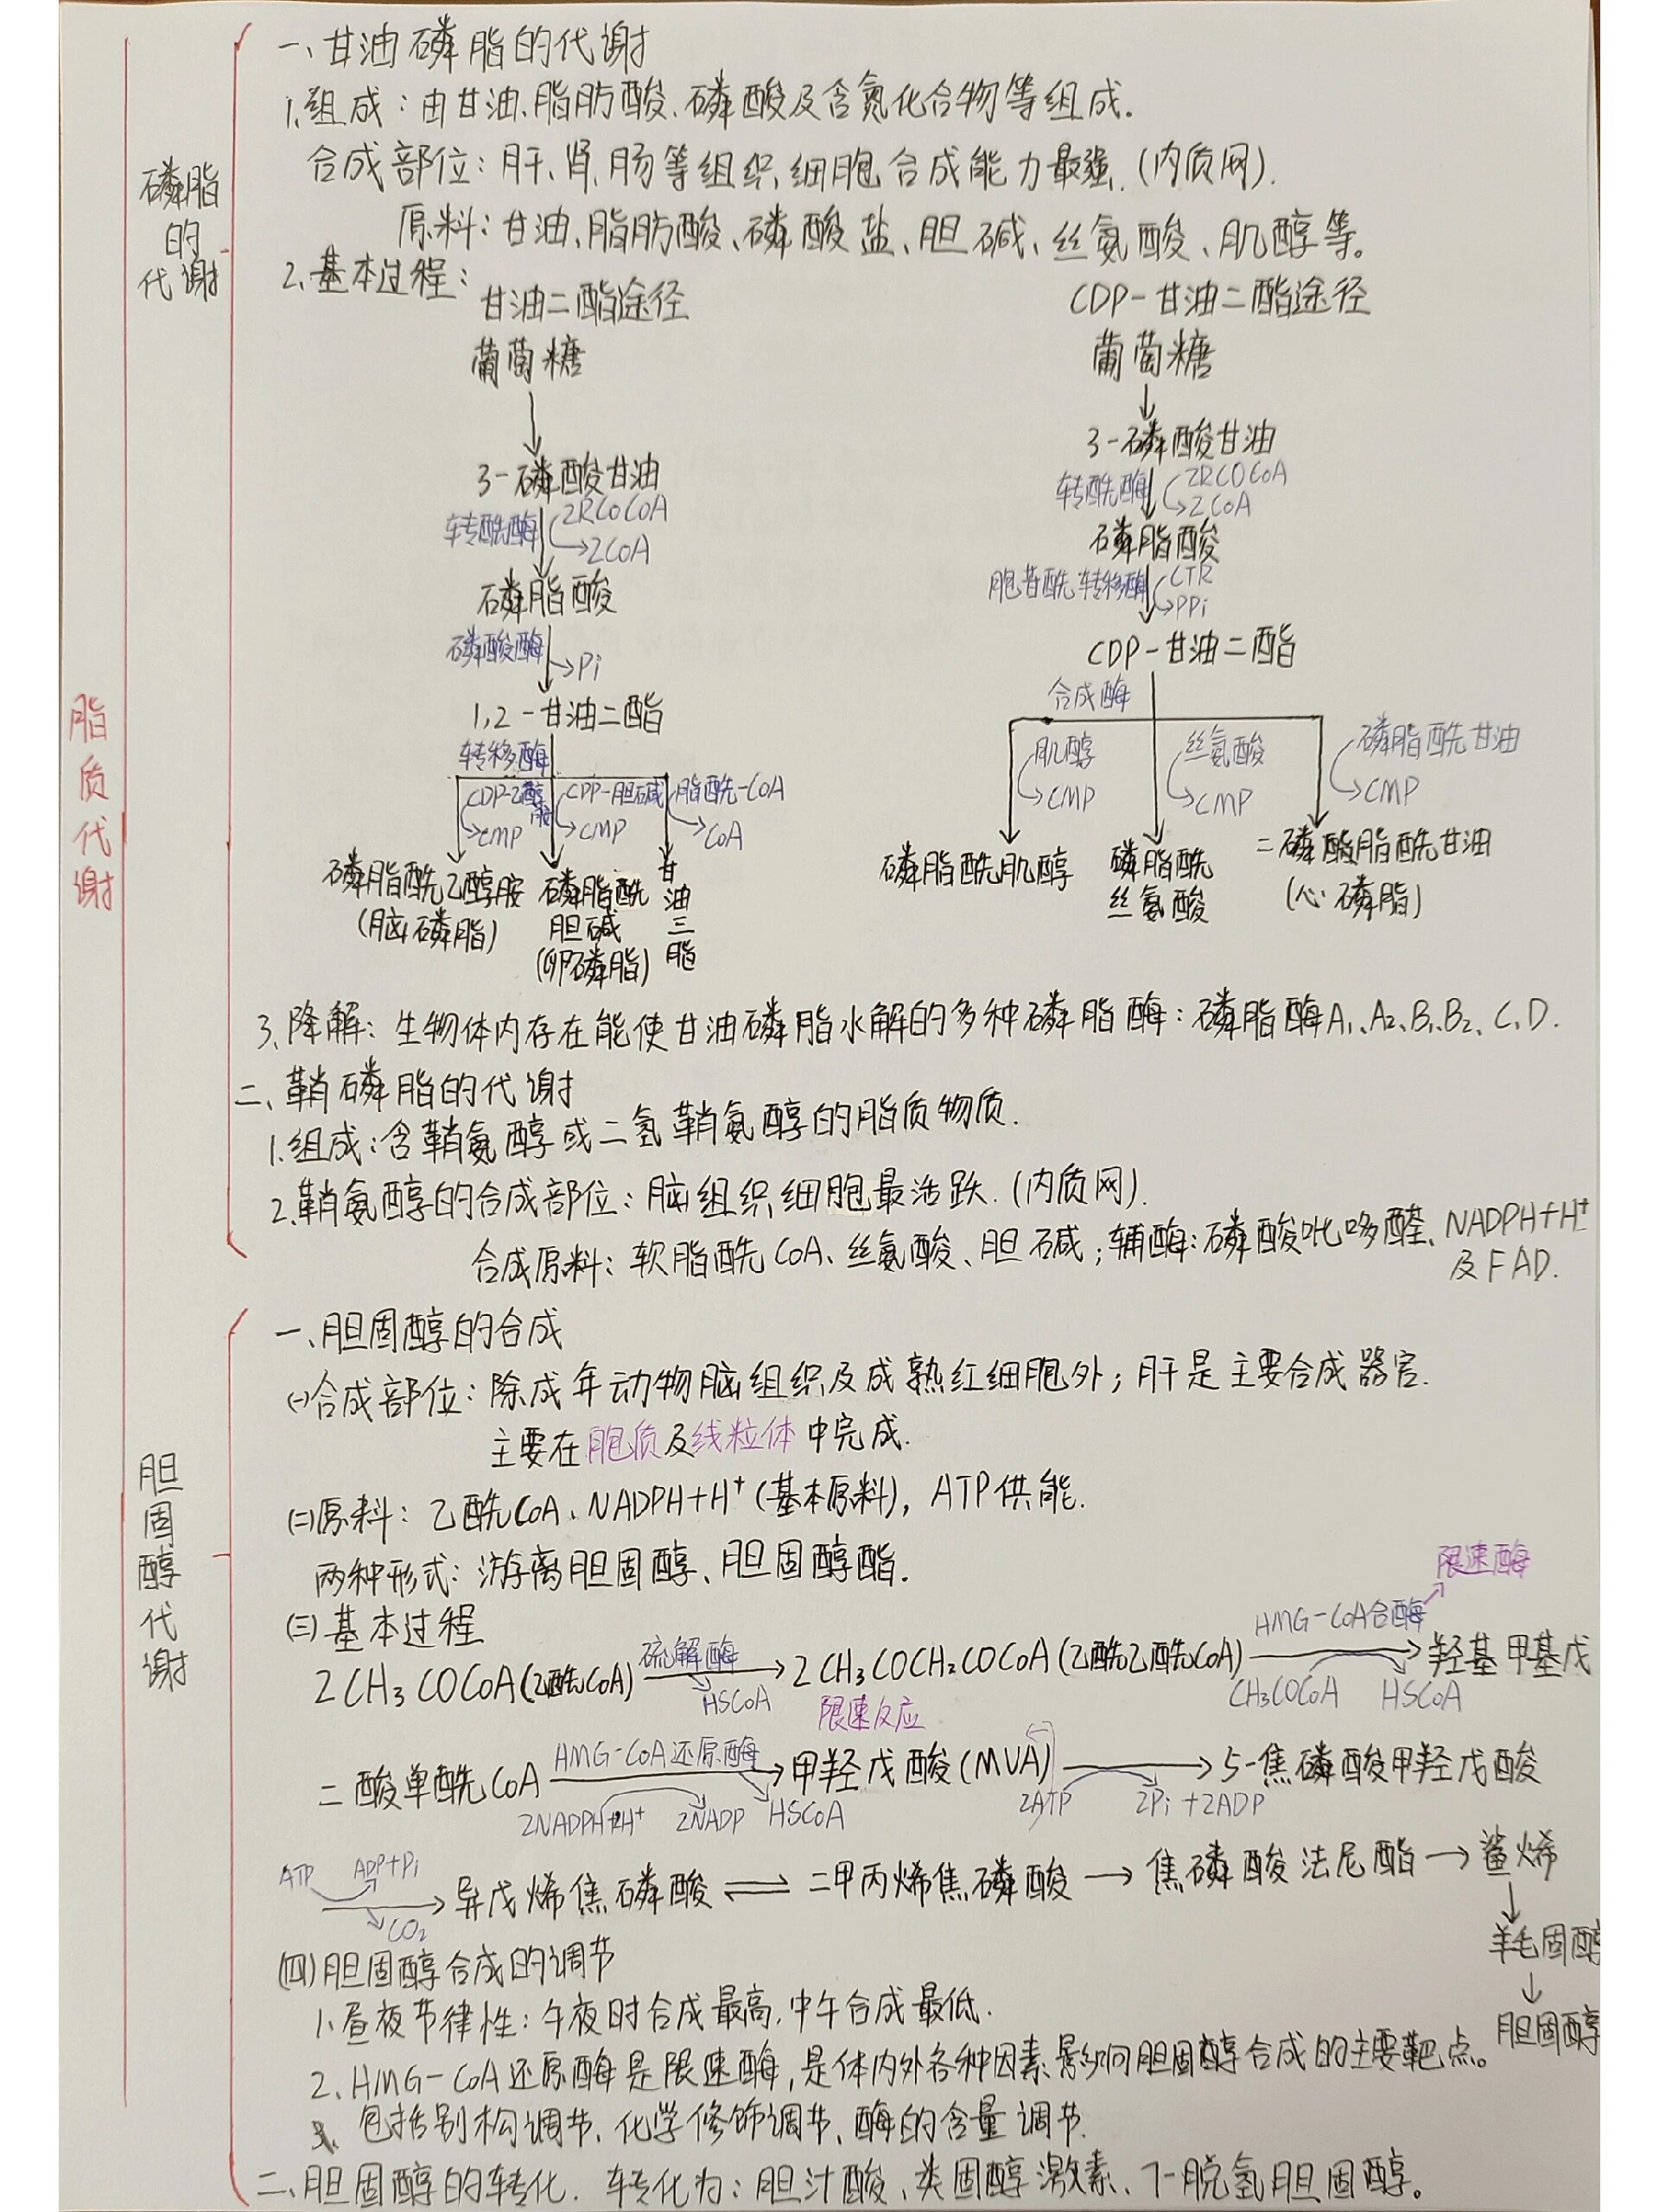 脂质代谢
磷脂的代谢
一、甘油磷脂的代谢
1.组成：由甘油、脂肪酸、磷酸及含氮化合物等组成.
合成部位：肝、肾、肠等组织细胞合成能力最强.(内质网).
原料：甘油、脂肪酸、磷酸盐、胆碱、丝氨酸、肌醇等。
2.基本过程：
甘油二酯途径
葡萄糖
3-磷酸甘油
转酰酶 2RCOCoA
→2CoA
磷脂酸
磷酸酶 →Pi
1,2-甘油二酯
转移酶
CDP-乙醇胺 CDP-胆碱 脂酰-CoA
CMP CMP CoA
磷脂酰乙醇胺
(脑磷脂)
磷脂酰
胆碱
(卵磷脂)
甘油三脂
CDP-甘油二酯途径
葡萄糖
3-磷酸甘油
转酰酶 2RCOCoA
→2CoA
磷脂酸
胞苷酰转移酶 CTR
→PPi
CDP-甘油二酯
合成酶
肌醇 丝氨酸 磷脂酰甘油
CMP CMP CMP
磷脂酰肌醇
磷脂酰
丝氨酸
二磷酸脂酰甘油
(心磷脂)
3.降解：生物体内存在能使甘油磷脂水解的多种磷脂酶：磷脂酶A₁、A₂、B₁、B₂、C、D.
二、鞘磷脂的代谢
1.组成：含鞘氨醇或二氢鞘氨醇的脂质物质.
2.鞘氨醇的合成部位：脑组织细胞最活跃.(内质网).
合成原料：软脂酰CoA、丝氨酸、胆碱；辅酶：磷酸吡哆醛、NADPH+H⁺
及FAD.
胆固醇代谢
一、胆固醇的合成
(一)合成部位：除成年动物脑组织及成熟红细胞外；肝是主要合成器官.
主要在胞质及线粒体中完成.
(二)原料：乙酰CoA、NADPH+H⁺(基本原料)，ATP供能.
两种形式：游离胆固醇、胆固醇酯.
(三)基本过程
限速酶
硫解酶 HMG-CoA合酶
2CH₃COCoA(乙酰CoA)→2CH₃COCH₂COCoA(乙酰乙酰CoA)→羟基甲基戊
HSCoA CH₃COCoA HSCoA
限速反应
HMG-CoA还原酶
二酸单酰CoA→甲羟戊酸(MVA)→5-焦磷酸甲羟戊酸
2NADPH+2H⁺ 2NADP HSCoA 2ATP 2Pi+2ADP
ATP ADP+Pi
→异戊烯焦磷酸⇌二甲丙烯焦磷酸→焦磷酸法尼酯→鲨烯
CO₂
羊毛固醇
胆固醇
(四)胆固醇合成的调节
1、昼夜节律性：午夜时合成最高，中午合成最低.
2、HMG-CoA还原酶是限速酶，是体内外各种因素影响胆固醇合成的主要靶点。
包括别构调节、化学修饰调节、酶的含量调节.
二、胆固醇的转化. 转化为：胆汁酸、类固醇激素、7-脱氢胆固醇。